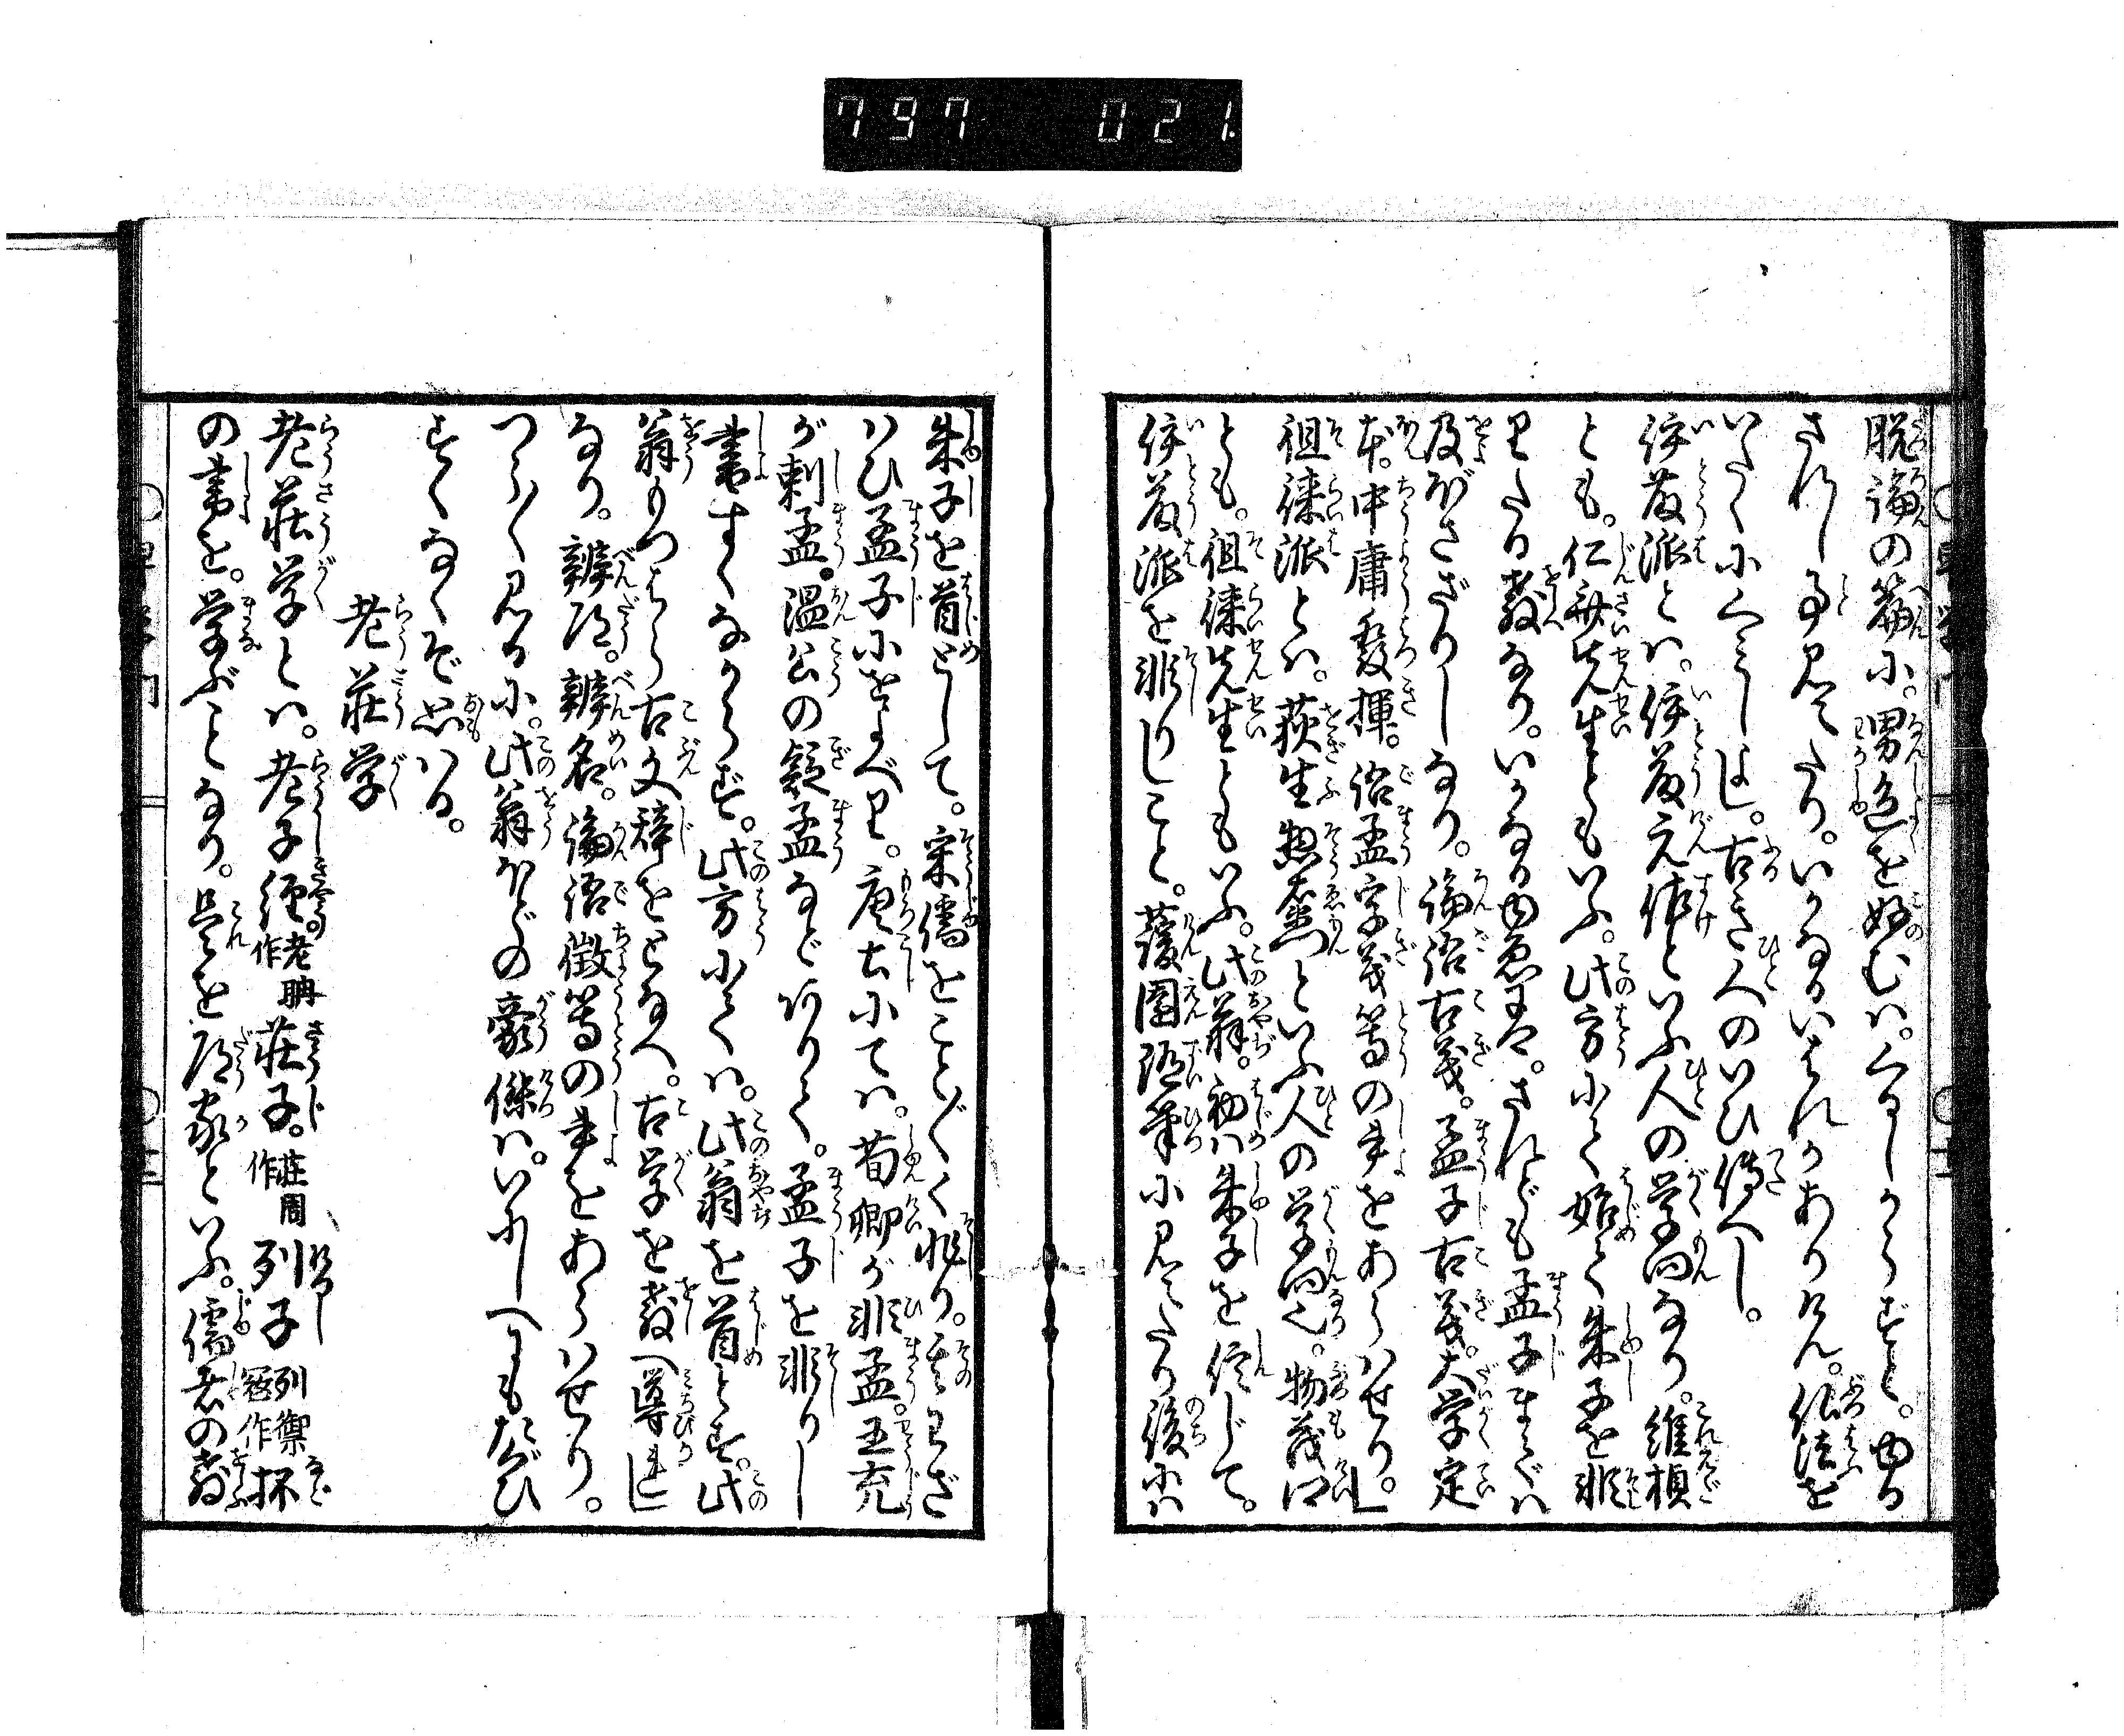 797 021
脱論の篇に。男色を好むハ。くるしからずと。ゆる
されし事見えたり。いかなるいはれかありけん。仏法を
いたくにくミしよし。古き人のいひ傳へし。
伊藤派とハ。伊藤元佐といふ人の学問なり。維楨
とも。仁斎先生ともいふ。此方にて始て朱子を非
りたる教なり。いかなるゆゑにや。されども孟子まてハ
及ばさざりしなり。論語古義。孟子古義。大学定
本。中庸発揮。語孟字義等の書をあらハせり。
徂徠派とハ。荻生惣右衛門といふ人の学問也。物茂卿
とも。徂徠先生ともいふ。此翁。初ハ朱子を信じて。
伊藤派を非りしこと。蘐園随筆に見えたり後にハ
朱子を首として。宋儒をことごとく非り。其わざ
ハひ孟子におよべり。唐土にてハ。荀卿が非孟。王充
が刺孟。温公の疑孟などありて。孟子を非りし
書すくなからず。此方にてハ。此翁を首とす。此
翁もつはら古文辞をとなへ。古学を教へ導れし
なり。辨道。辨名。論語徴等の書をあらハせり。
つらつら見るに。此翁ほどの豪傑ハ。いにしへにもたぐひ
すくなくぞ思ハる。
老荘学
老荘学とハ。老子経。老聃作 荘子。荘周作 列子 列禦冠作 抔
の書を。学ぶことなり。是を道家といふ。儒者の教